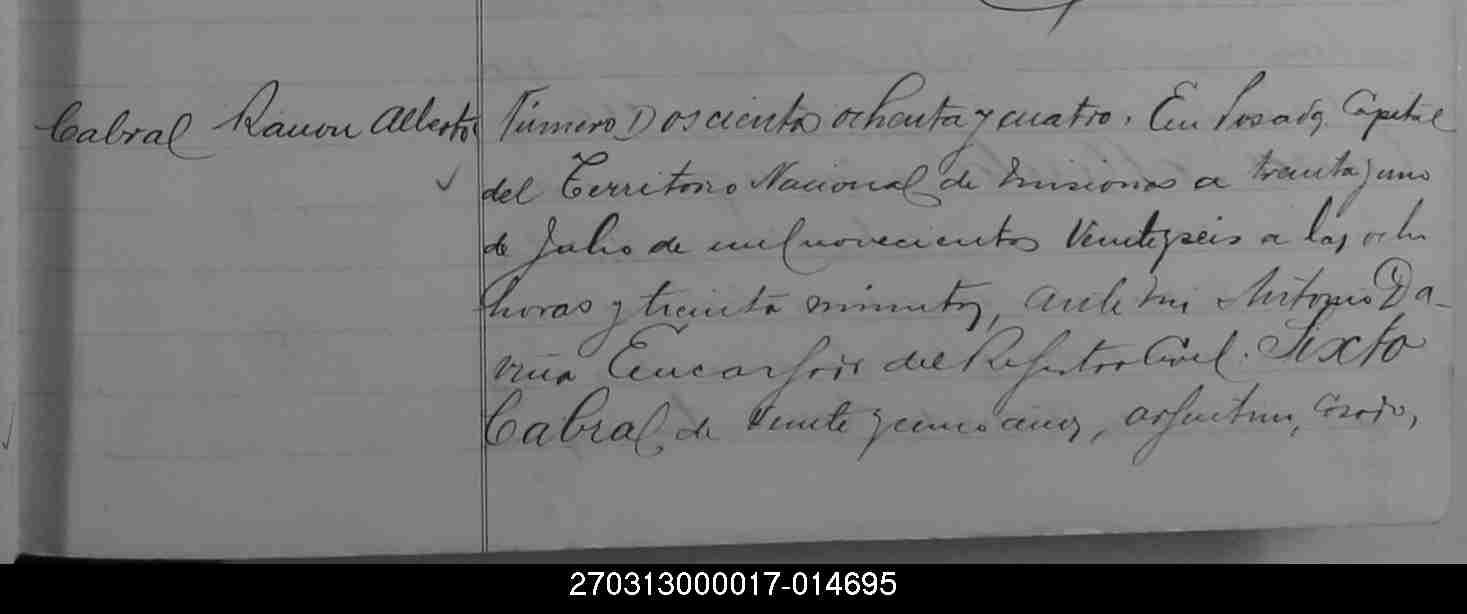 Cabral Ramon Alberto
Número Doscientos ochenta y cuatro. En Posadas, Capital
del Territorio Nacional de Misiones a treinta y uno
de Julio de mil novecientos Veinte y seis a las ocho
horas y treinta minutos, ante mi Antonio Da-
viña Encargado del Registro Civil. Sixto
Cabral de veinte y cinco años, argentino, casado,
270313000017-014695